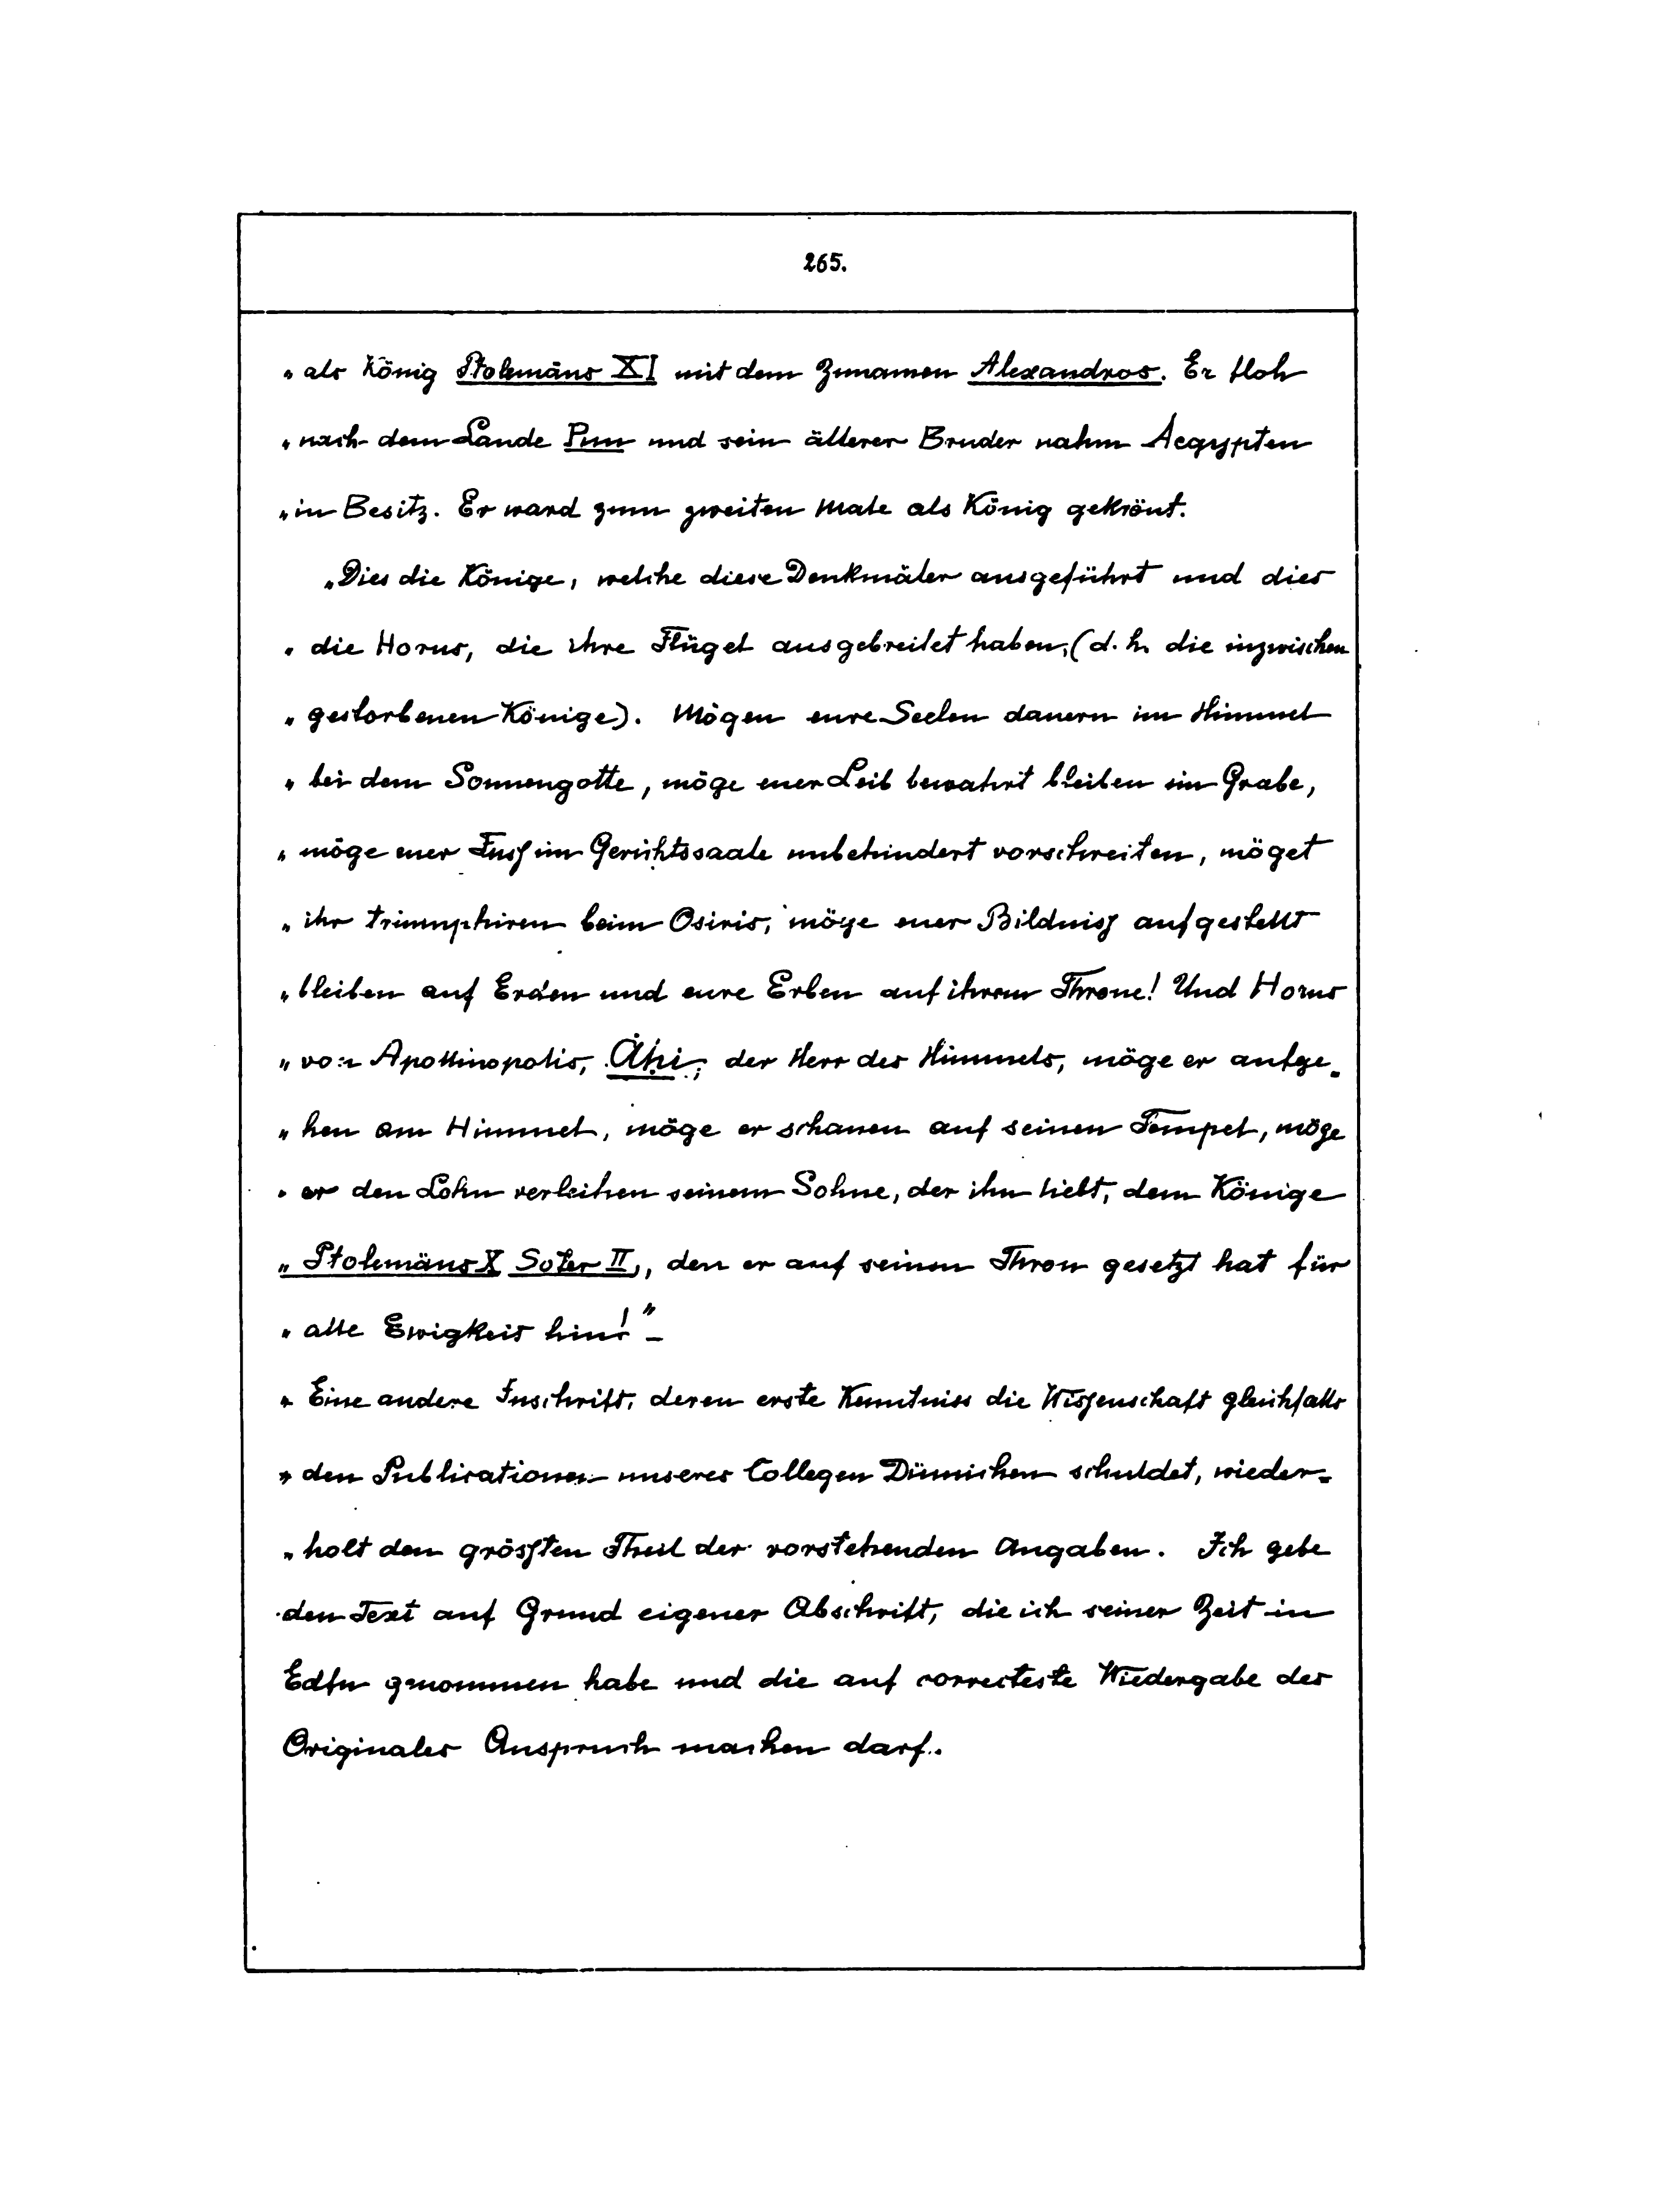 265.
„ als König Ptolemäus XI mit dem Zunamen Alexandros. Er floh
„ nach dem Lande Pun und sein älterer Bruder nahm Aegypten
„ in Besitz. Er ward zum zweiten Male als König gekrönt.
„Dies die Könige, welche diese Denkmäler ausgeführt und dies
„ die Horus, die ihre Flügel ausgebreitet haben, (d. h. die inzwischen
„ gestorbenen Könige). Mögen eure Seelen dauern im Himmel
„ bei dem Sonnengotte, möge euer Leib bewahrt bleiben im Grabe,
„ möge euer Fuſs im Gerichtssaale unbehindert vorschreiten, möget
„ ihr triumphiren beim Osiris, möge euer Bildniſs aufgestellt
„ bleiben auf Erden und eure Erben auf ihrem Throne! Und Horus
„ von Apollinopolis, Ahi, der Herr des Himmels, möge er aufge-
„ hen am Himmel, möge er schauen auf seinen Tempel, möge
„ er den Lohn verleihen seinem Sohne, der ihn liebt, dem Könige
„ Ptolemäus X Soter II, den er auf seinen Thron gesetzt hat für
„ alle Ewigkeit hin!" —
„ Eine andere Inschrift, deren erste Kenntniss die Wiſsenschaft gleichfalls
„ den Publicationen unseres Collegen Dümichen schuldet, wieder-
„ holt den gröſsten Theil der vorstehenden Angaben. Ich gebe
den Text auf Grund eigener Abschrift, die ich seiner Zeit in
Edfu genommen habe und die auf correcteste Wiedergabe des
Originales Anspruch machen darf.